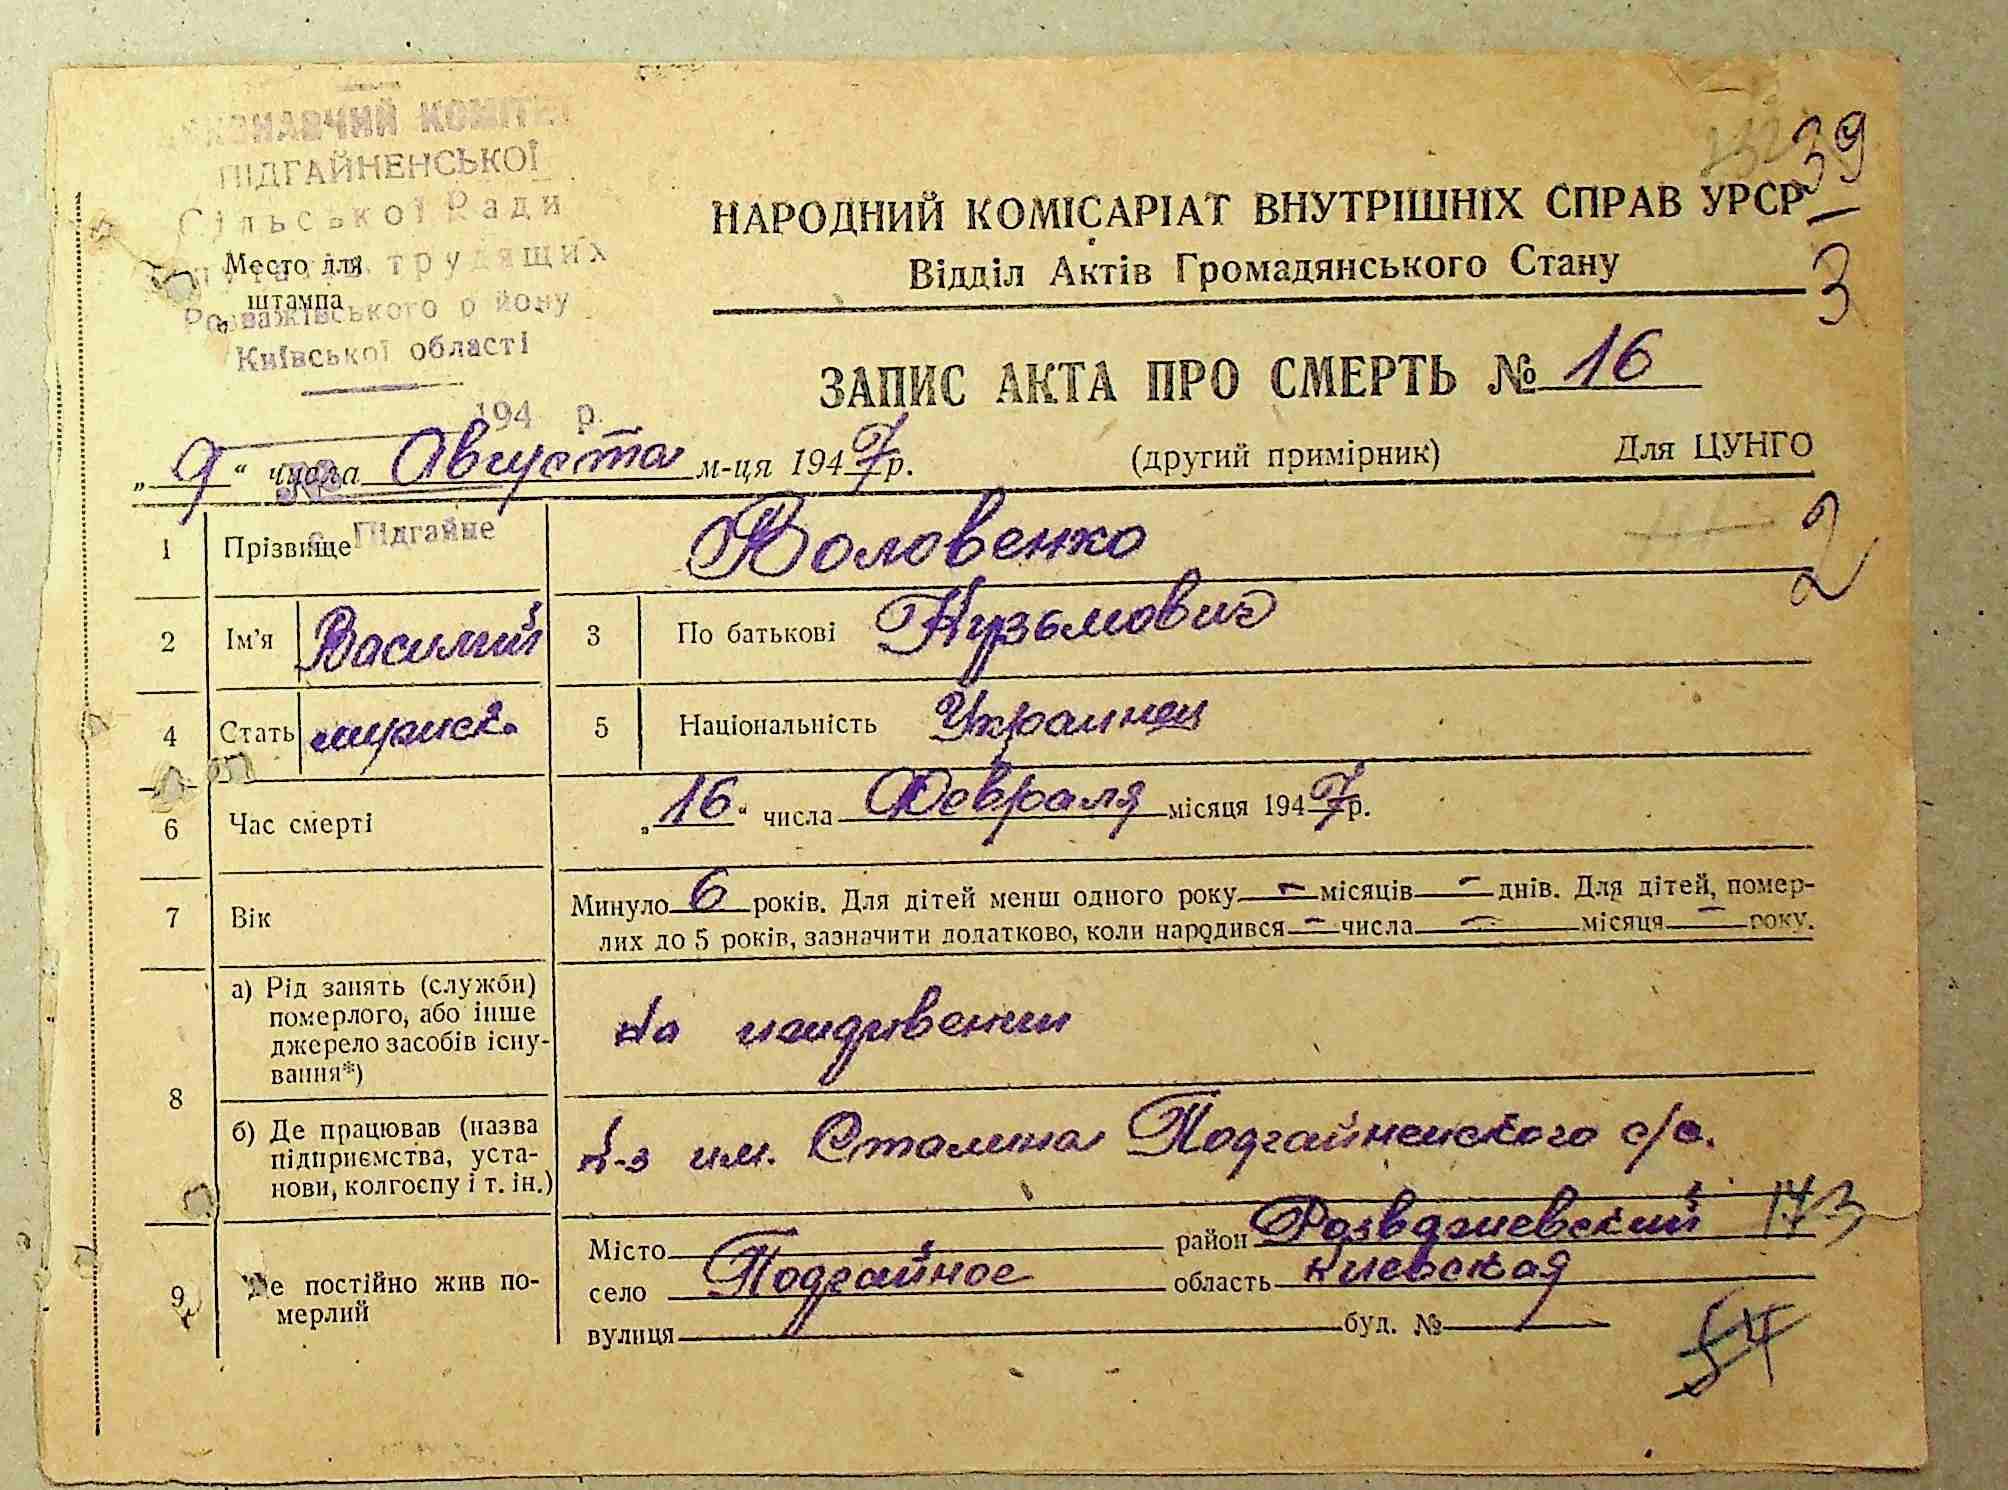 КОМІТЕТ
ПІДГАЙНЕНСЬКОЇ
Сільської Ради
трудящих
Розважівського р йону
Київської області
194 р.
с. Підгайне
Место для
штампа
НАРОДНИЙ КОМІСАРІАТ ВНУТРІШНІХ СПРАВ УРСР
Відділ Актів Громадянського Стану
39
3
ЗАПИС АКТА ПРО СМЕРТЬ № 16
„9“ числа Августа м-ця 1947 р. (другий примірник) Для ЦУНГО
2
1 Прізвище Воловенко
2 Ім'я Василий 3 По батькові Кузьмович
4 Стать мужск. 5 Національність Украинец
6 Час смерті „16“ числа Февраля місяця 1947 р.
7 Вік Минуло 6 років. Для дітей менш одного року — місяців — днів. Для дітей, помер-
лих до 5 років, зазначити додатково, коли народився — числа — місяця — року.
8 а) Рід занять (служби)
померлого, або інше
джерело засобів існу-
вання*)
На иждивении
б) Де працював (назва
підприємства, уста-
нови, колгоспу і т. ін.)
к-з им. Сталина Подгайненского с/с.
9 Де постійно жив по-
мерлий
Місто район Розважевский
173
село Подгайное область Киевская
вулиця буд. №
54